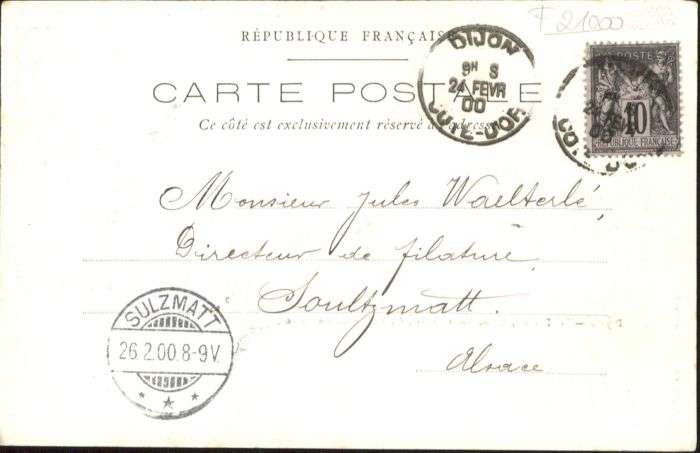 F 21000
RÉPUBLIQUE FRANÇAISE
CARTE POSTALE
Ce côté est exclusivement réservé à l'adresse
DIJON
8H S
24 FEVR
00
COTE-D'OR
POSTES
10
REPUBLIQUE FRANCAISE
Monsieur Jules Waelterlé,
Directeur de filature,
Soultzmatt.
Alsace
SULZMATT
26.2.00.8-9V.